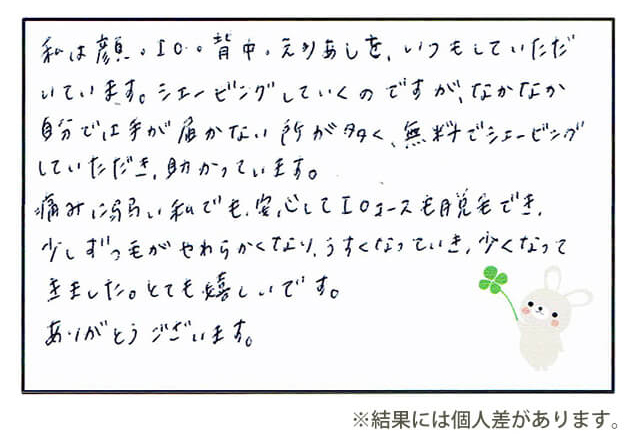 私は顔。IO。背中。えりあしを、いつもしていただ
いています。シェービングしていくのですが、なかなか
自分では手が届かない所が多く、無料でシェービング
していただき、助かっています。
痛みに弱い私でも、安心してIOコースも脱毛でき、
少しずつ毛がやわらかくなり、うすくなっていき、少くなって
きました。とても嬉しいです。
ありがとうございます。
※結果には個人差があります。